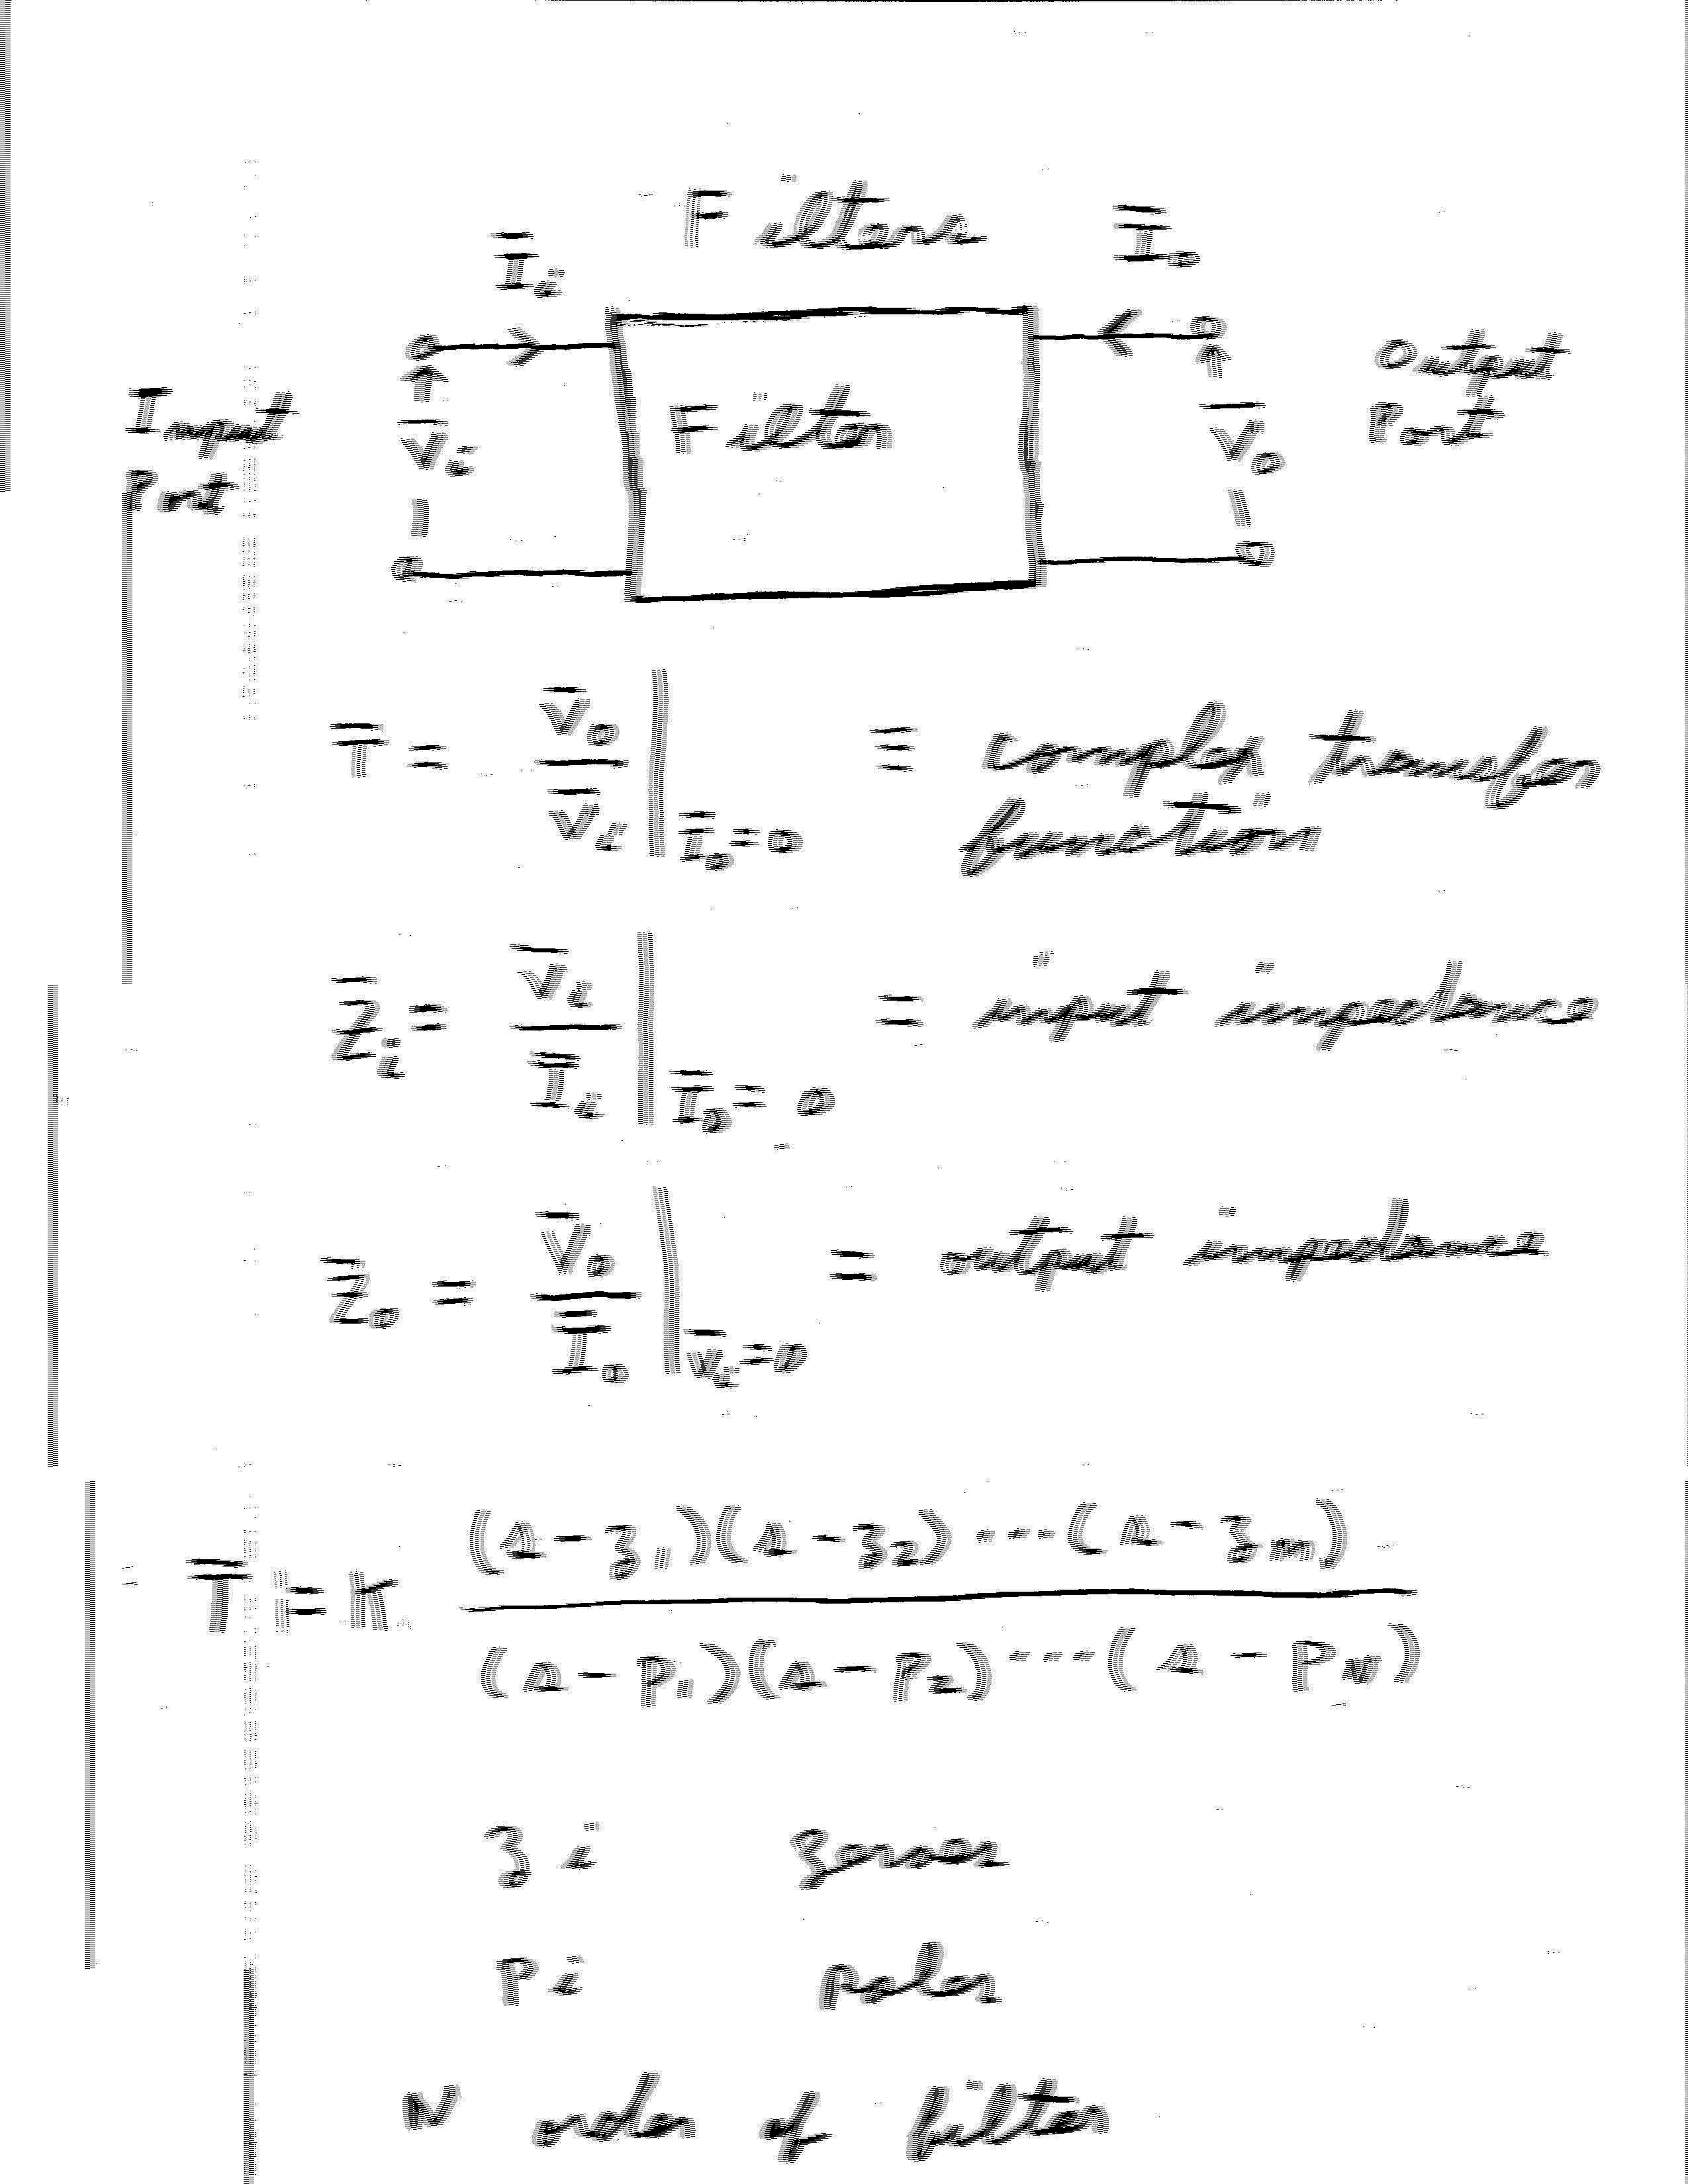 Filters
I̅ᵢ I̅ₒ
Input Port
V̅ᵢ
Filter
V̅ₒ
Output Port
T̅ = V̅ₒ / V̅ᵢ | I̅ₒ=0 ≡ complex transfer function
Z̅ᵢ = V̅ᵢ / I̅ᵢ | I̅ₒ=0 = input impedance
Z̅ₒ = V̅ₒ / I̅ₒ | V̅ᵢ=0 = output impedance
T̅ = K (s-z₁)(s-z₂)---(s-zₘ) / (s-P₁)(s-P₂)---(s-P_N)
zᵢ zeroes
Pᵢ poles
N order of filter